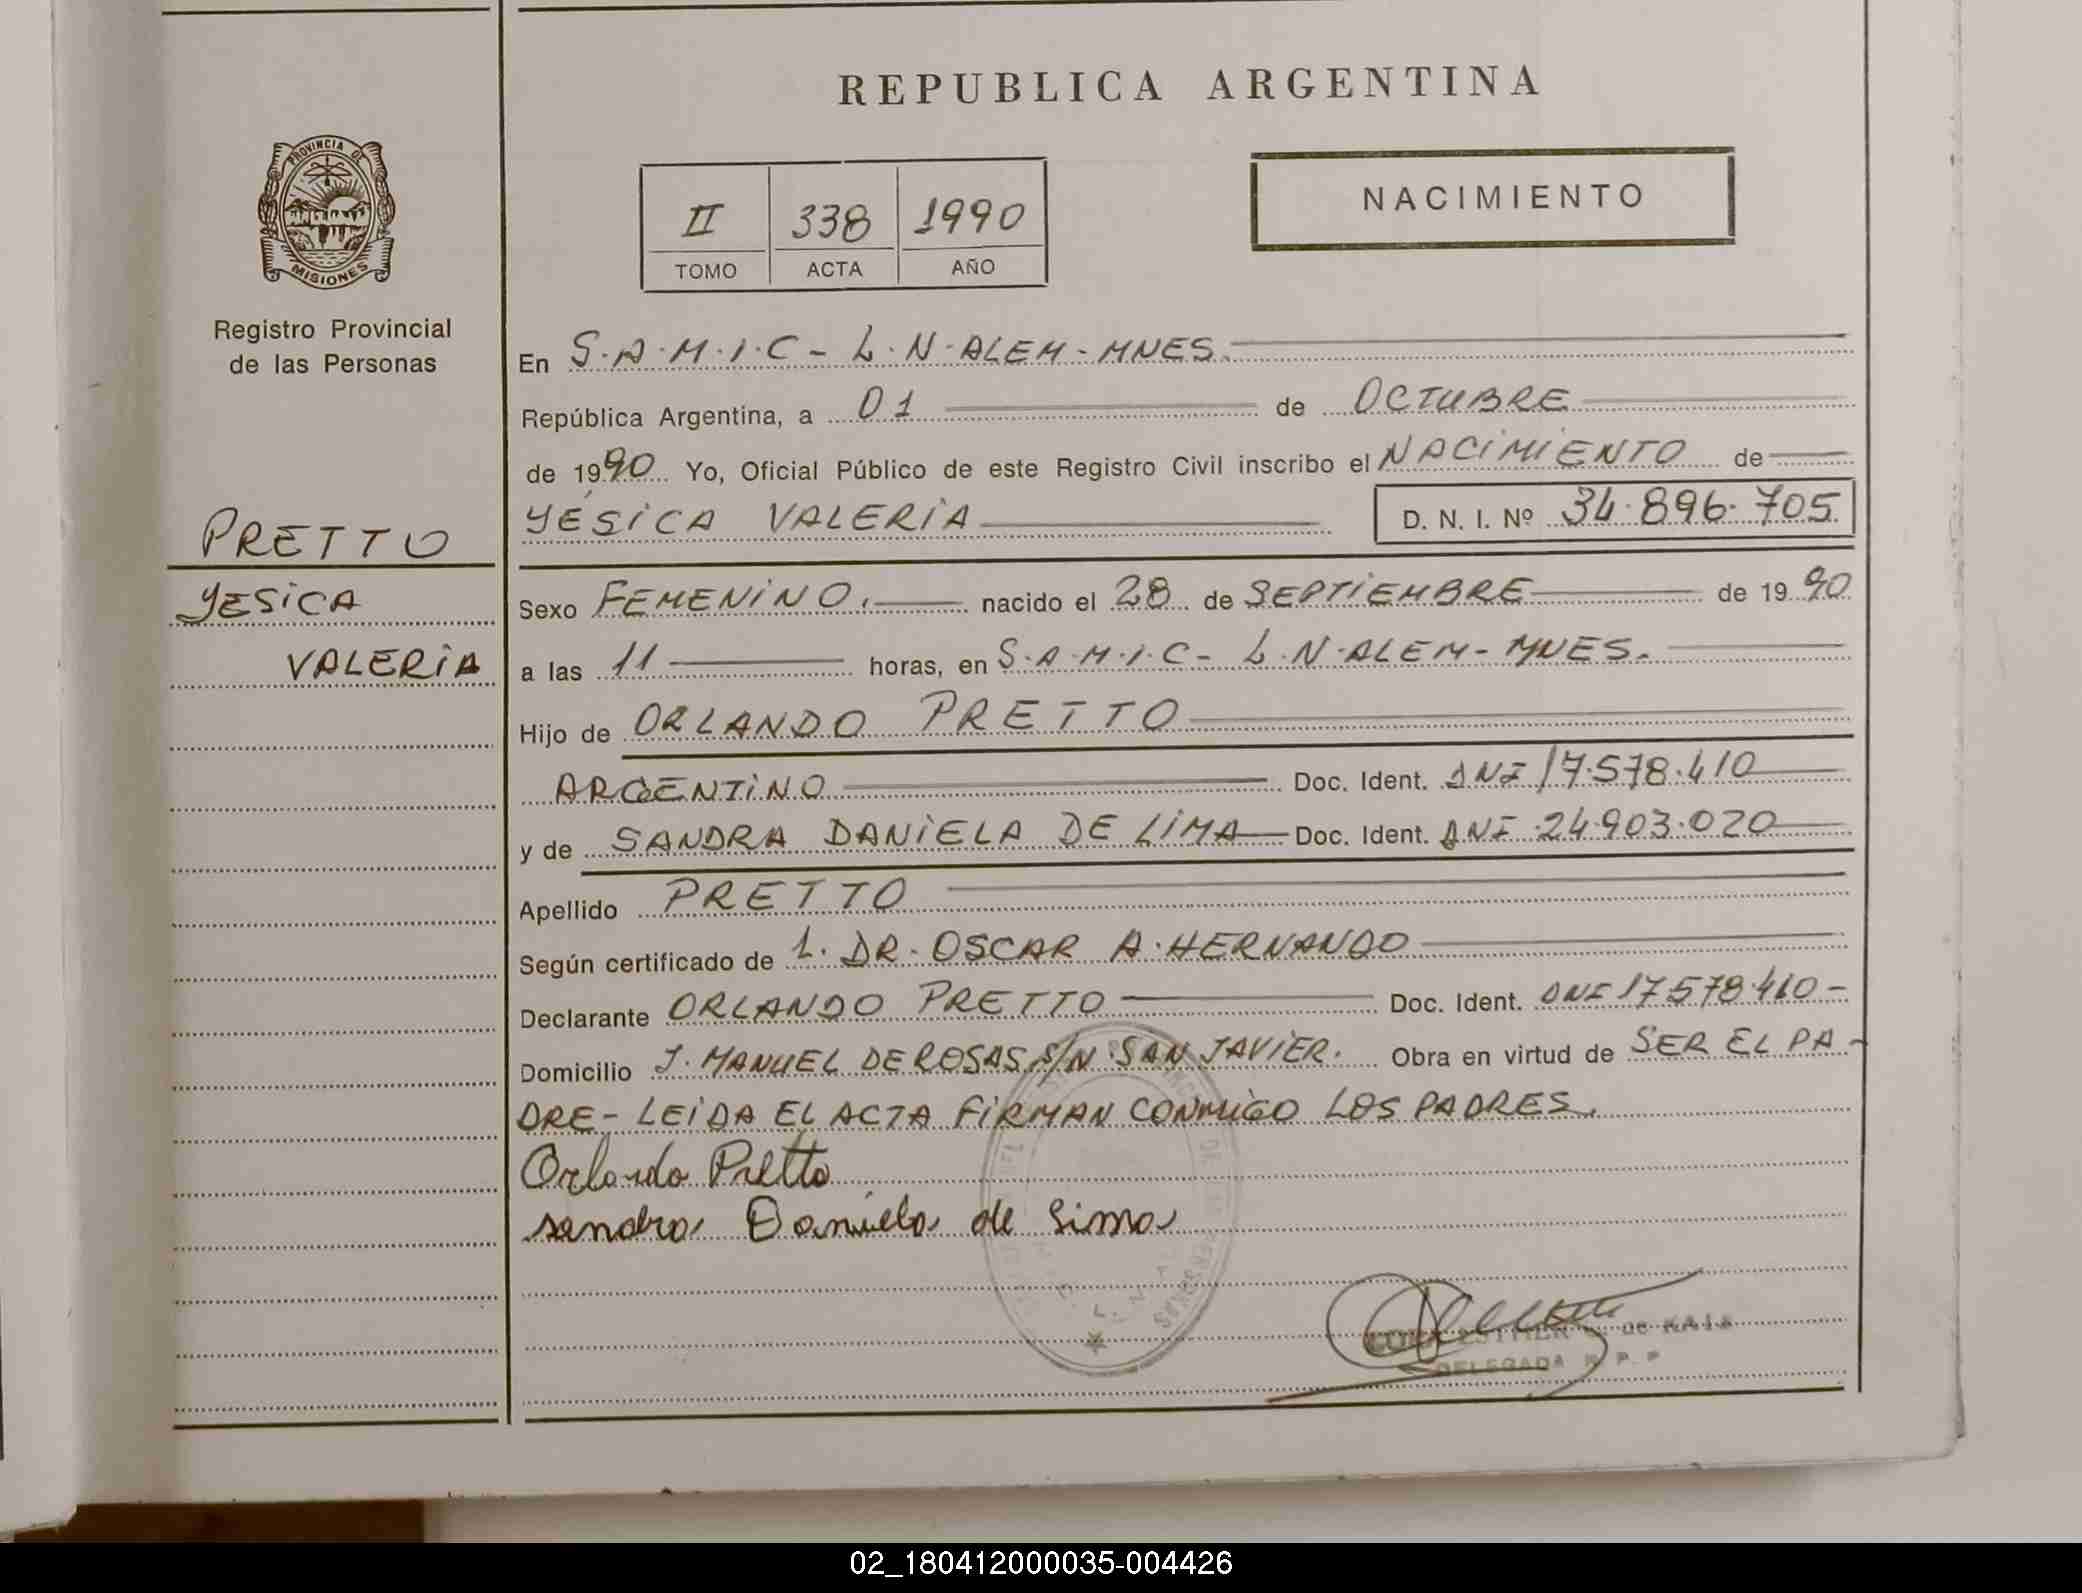 REPUBLICA ARGENTINA
PROVINCIA DE
MISIONES
Registro Provincial
de las Personas
II 338 1990
TOMO ACTA AÑO
NACIMIENTO
PRETTO
YESICA
VALERIA
En S.A.M.I.C - L.N.ALEM - MNES.
República Argentina, a 01 de OCTUBRE
de 1990 Yo, Oficial Público de este Registro Civil inscribo el NACIMIENTO de
YÉSICA VALERIA D. N. I. Nº 34.896.705
Sexo FEMENINO. nacido el 28 de SEPTIEMBRE de 1990
a las 11 horas, en S.A.M.I.C - L.N.ALEM - MNES.
Hijo de ORLANDO PRETTO
ARGENTINO Doc. Ident. DNI 17.578.410
y de SANDRA DANIELA DE LIMA Doc. Ident. DNI 24.903.020
Apellido PRETTO
Según certificado de L. DR. OSCAR A. HERNANDO
Declarante ORLANDO PRETTO Doc. Ident. DNI 17.578.410 -
Domicilio J. MANUEL DE ROSAS S/N. SAN JAVIER. Obra en virtud de SER EL PA-
DRE - LEIDA EL ACTA FIRMAN CONMIGO LOS PADRES.
Orlando Pretto
sandra Daniela de Lima
ESTHER de
DELEGADA R. P. P
02_180412000035-004426